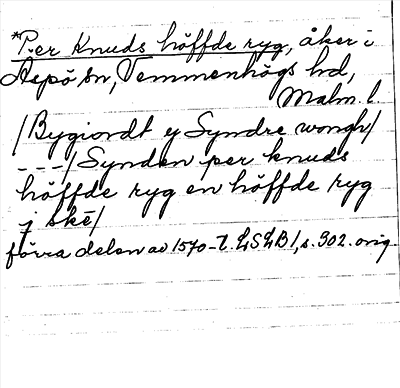 *Per Knuds höffde ryg, åker i
Aspö sn, Vemmenhögs hd,
Malm. l.
/Bygiordt ej Syndre wongh/
---/Synden per knuds
höffde ryg en höffde ryg
j skē/
förra delen av 1570-t. LSLB 1, s. 302. orig.